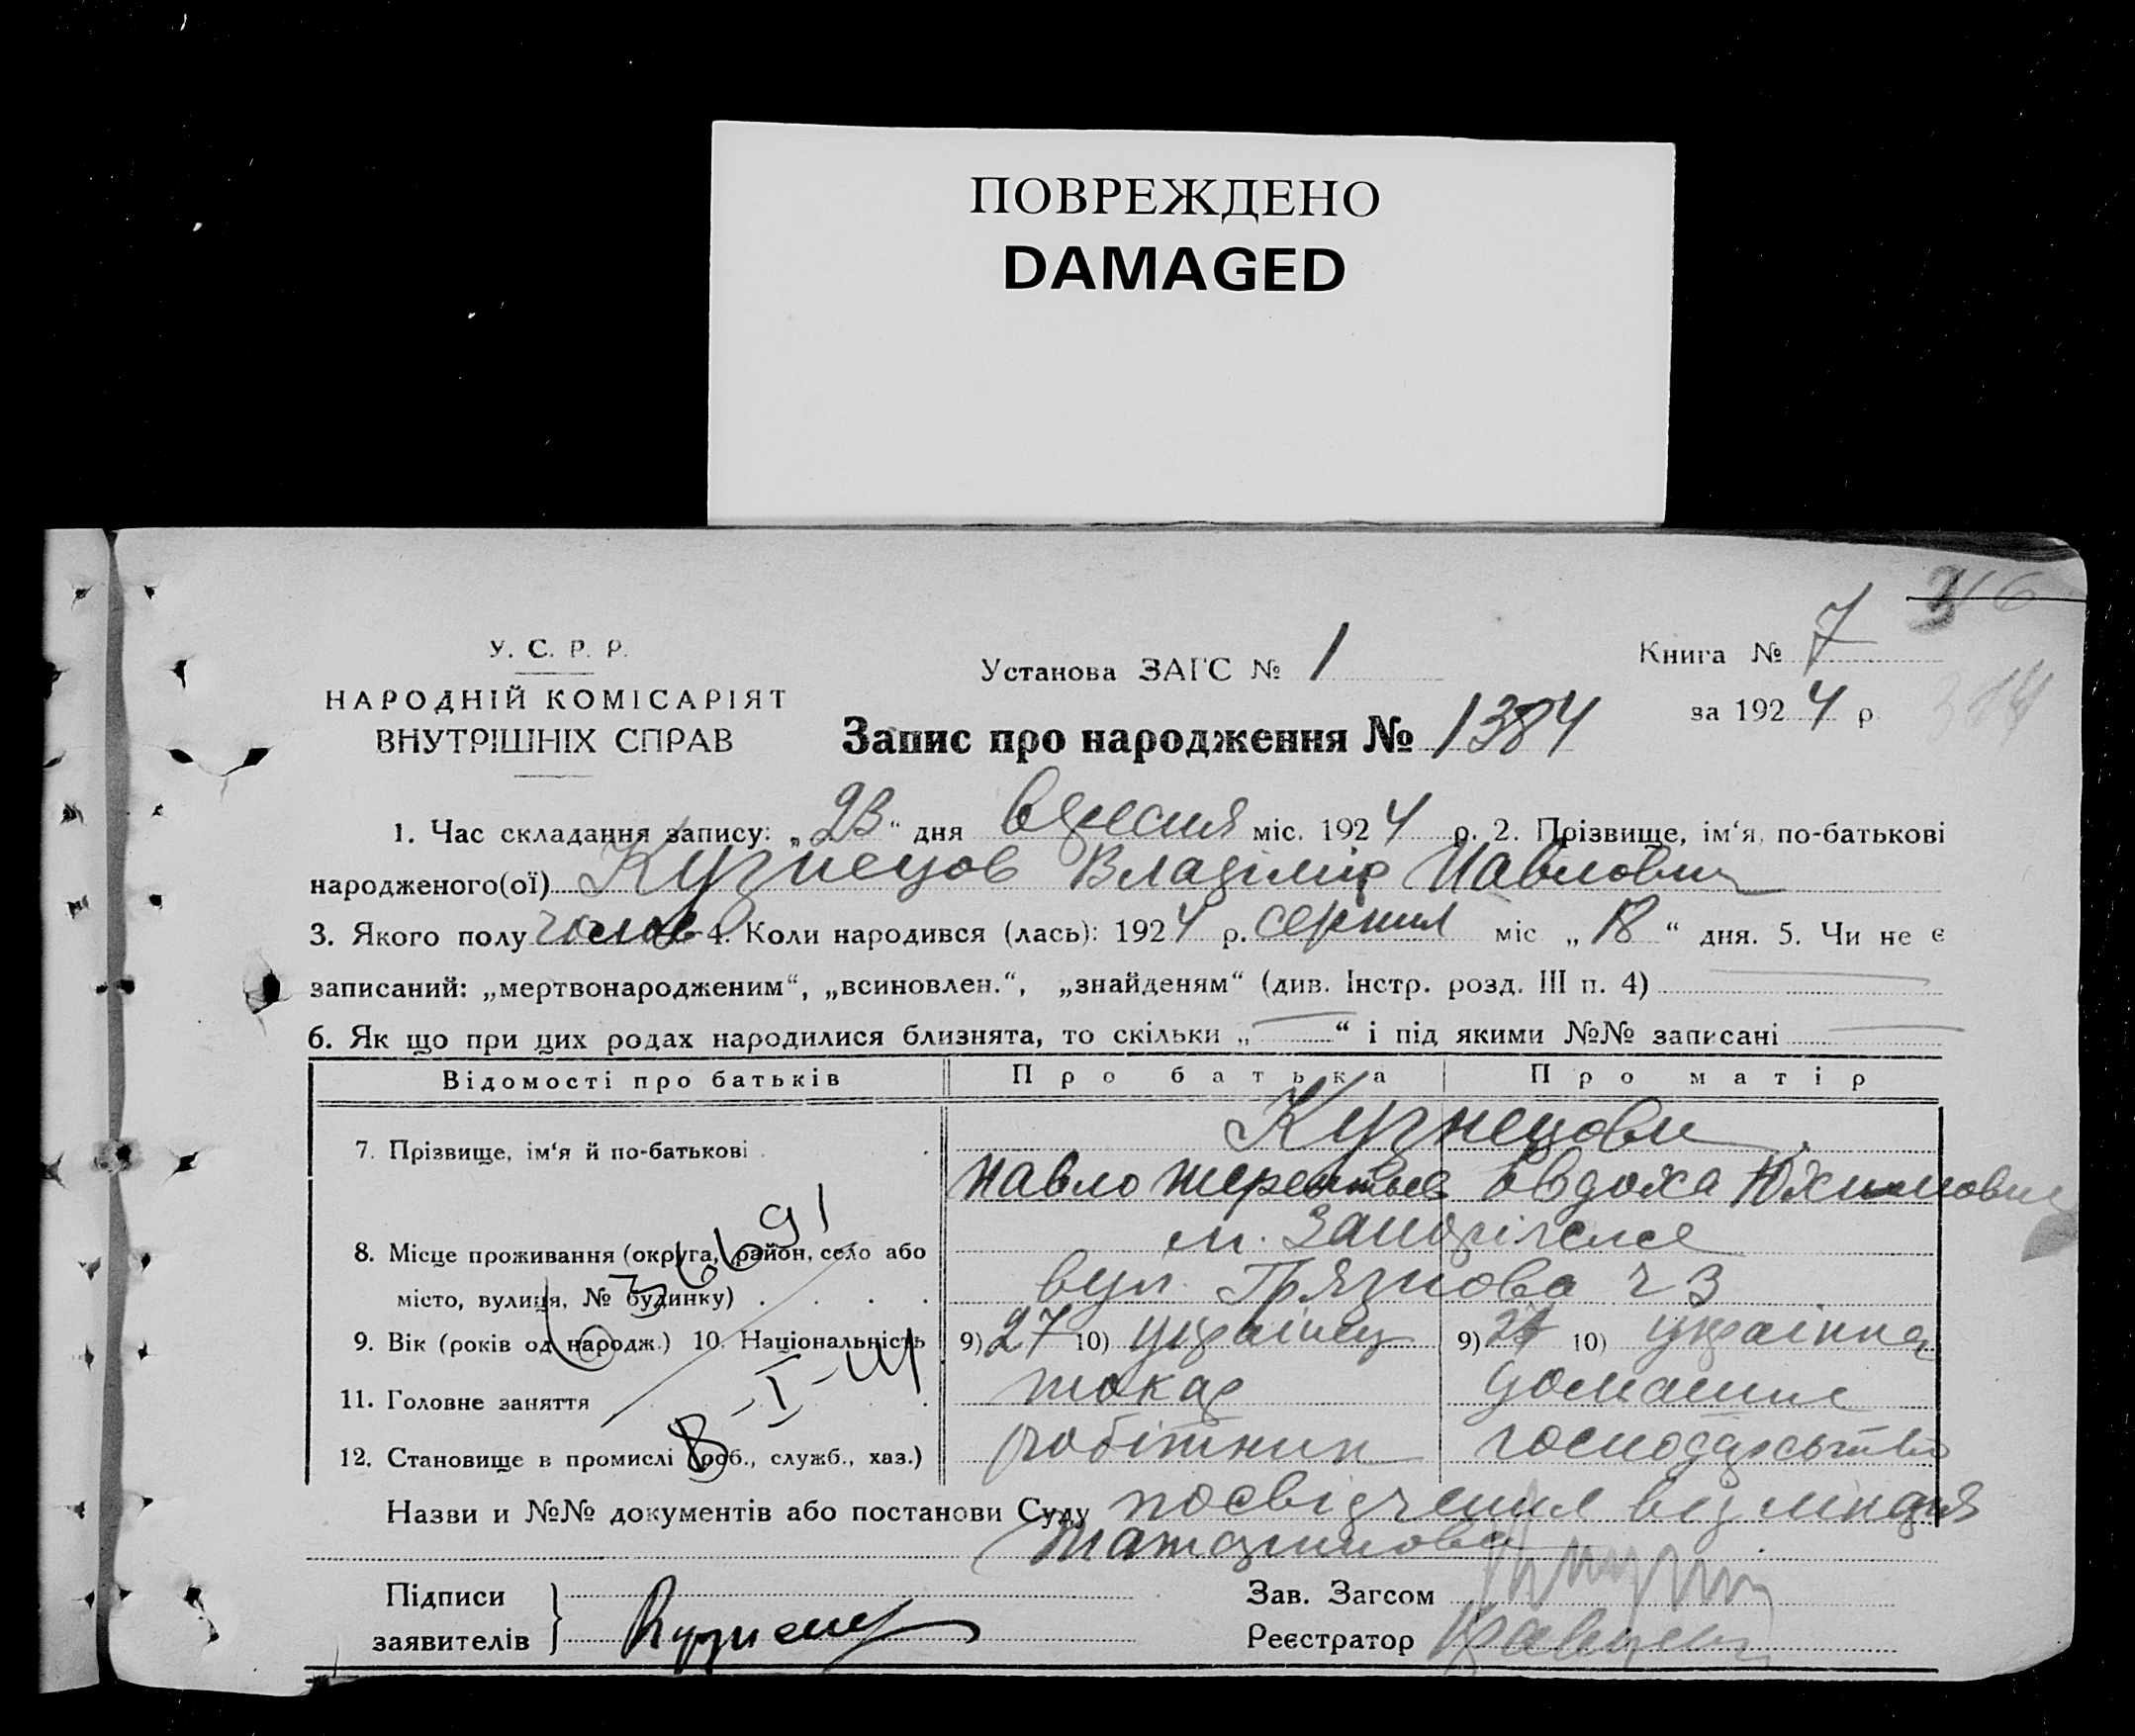 ПОВРЕЖДЕНО
DAMAGED
У. С. Р. Р.
НАРОДНІЙ КОМІСАРІЯТ
ВНУТРІШНІХ СПРАВ
Установа ЗАГС № 1
Запис про народження № 1384
Книга № 7
за 1924 р
1. Час складання запису: „23“ дня вересня міс. 1924 р. 2. Прізвище, ім‘я, по-батькові
народженого(ої) Кузнецов Владімір Павлович
3. Якого полу чолов 4. Коли народився (лась): 1924 р. серпня міс „18“ дня. 5. Чи не є
записаний: „мертвонародженим“, „всиновлен.“, „знайденям“ (див. Інстр. розд. III п. 4)
6. Як що при цих родах народилися близнята, то скільки „ “ і під якими №№ записані
Відомості про батьків Про батька Про матір
Кузнецови
7. Прізвище, ім‘я й по-батькові Павло Терентьев Овдоха Юхимовна
8. Місце проживання (округа, район, село або м. Запоріжжя
місто, вулиця, № будинку) вул. Грязнова ч 3
9. Вік (років од народж.) 10. Національність 9) 27 10) українец 9) 10) українка
11. Головне заняття токар домашнє
12. Становище в промислі (роб., служб., хаз.) робітник господарство
Назви и №№ документів або постанови Суду посвідчення від
Підписи
заявителів Кузнец
Зав. Загсом
Реєстратор Кравцев